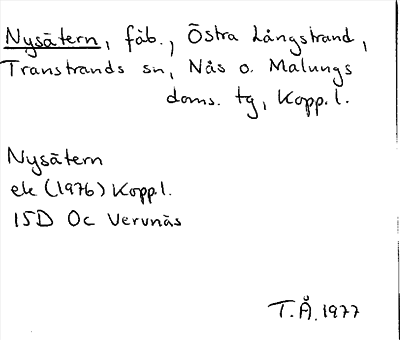 Nysätern, fäb., Östra Långstrand,
Transtrands sn, Nås o. Malungs
doms. tg, Kopp. l.
Nysätern
ek (1976) Kopp.l.
15D Oc Vervnäs
T.Å. 1977